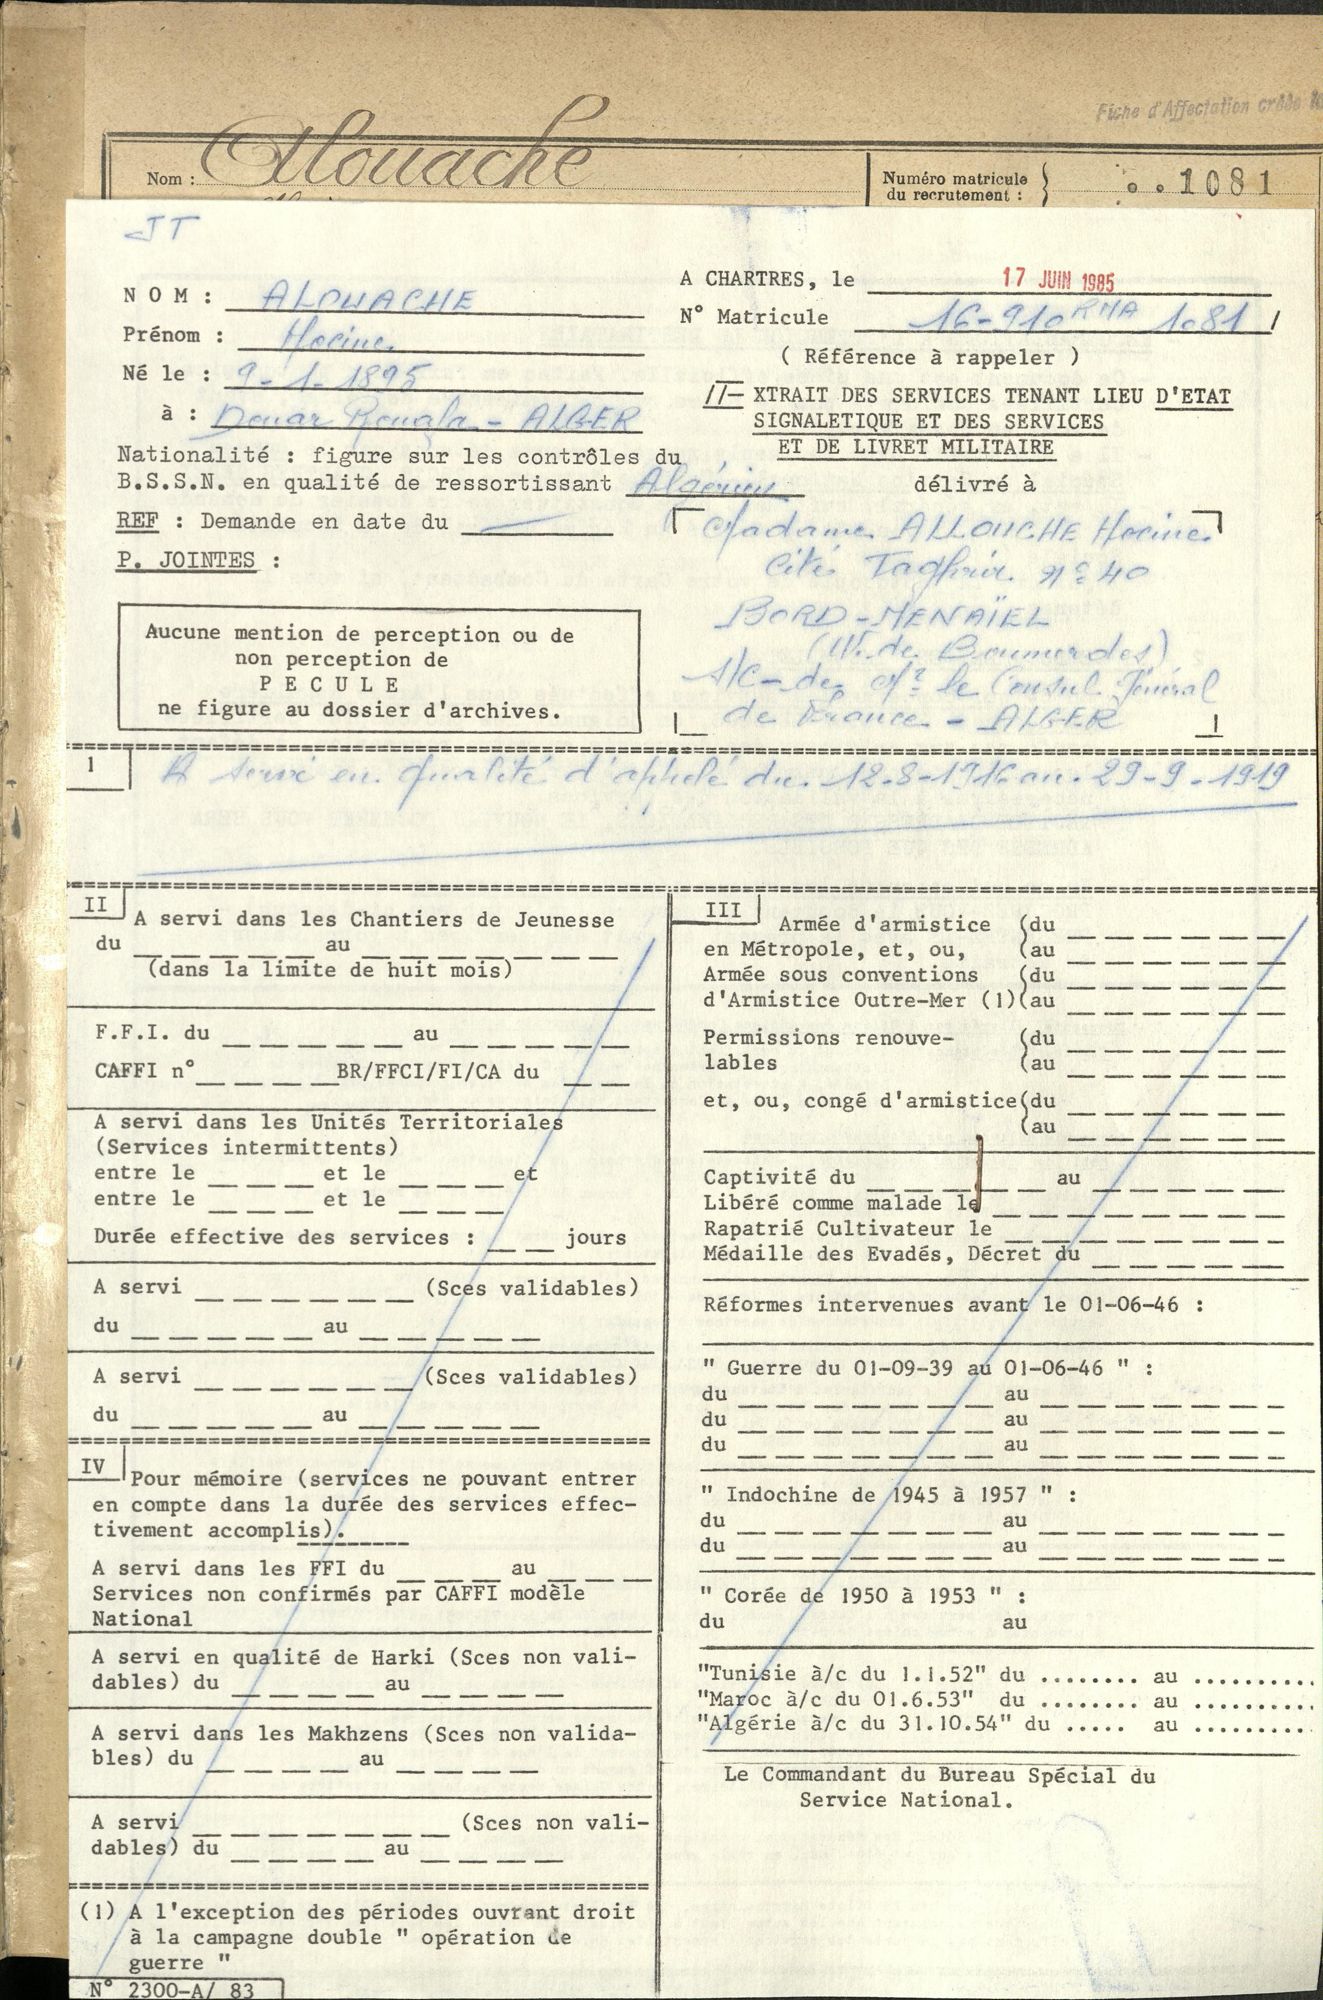 Fiche d'Affectation créée le
Nom : Alouache
Numéro matricule
du recrutement : 1081
JT
NOM : ALOUACHE
Prénom : Hocine
Né le : 9-1-1895
à : Douar Rouafa - ALGER
Nationalité : figure sur les contrôles du
B.S.S.N. en qualité de ressortissant Algérien
REF : Demande en date du
P. JOINTES :
Aucune mention de perception ou de
non perception de
PECULE
ne figure au dossier d'archives.
A CHARTRES, le 17 JUIN 1985
N° Matricule 16-910 RMA 1081
( Référence à rappeler )
XTRAIT DES SERVICES TENANT LIEU D'ETAT
SIGNALETIQUE ET DES SERVICES
ET DE LIVRET MILITAIRE
délivré à
Madame ALLOUCHE Hocine
Cité Taghrir n° 40
BORD-MENAÏEL
(W. de Boumerdes)
S/C- de Mr le Consul Général
de France - ALGER
I
A servi en qualité d'appelé du 12-8-1916 au 29-9-1919
II
A servi dans les Chantiers de Jeunesse
du au
(dans la limite de huit mois)
F.F.I. du au
CAFFI n° BR/FFCI/FI/CA du
A servi dans les Unités Territoriales
(Services intermittents)
entre le et le et
entre le et le
Durée effective des services : jours
A servi (Sces validables)
du au
A servi (Sces validables)
du au
IV
Pour mémoire (services ne pouvant entrer
en compte dans la durée des services effec-
tivement accomplis).
A servi dans les FFI du au
Services non confirmés par CAFFI modèle
National
A servi en qualité de Harki (Sces non vali-
dables) du au
A servi dans les Makhzens (Sces non valida-
bles) du au
A servi (Sces non vali-
dables) du au
(1) A l'exception des périodes ouvrant droit
à la campagne double " opération de
guerre "
N° 2300-A/ 83
III
Armée d'armistice (du
en Métropole, et, ou, (au
Armée sous conventions (du
d'Armistice Outre-Mer (1)(au
Permissions renouve- (du
lables (au
et, ou, congé d'armistice(du
(au
Captivité du au
Libéré comme malade le
Rapatrié Cultivateur le
Médaille des Evadés, Décret du
Réformes intervenues avant le 01-06-46 :
" Guerre du 01-09-39 au 01-06-46 " :
du au
du au
du au
" Indochine de 1945 à 1957 " :
du au
du au
" Corée de 1950 à 1953 " :
du au
"Tunisie à/c du 1.1.52" du ........ au ..........
"Maroc à/c du 01.6.53" du ........ au ..........
"Algérie à/c du 31.10.54" du ..... au ..........
Le Commandant du Bureau Spécial du
Service National.